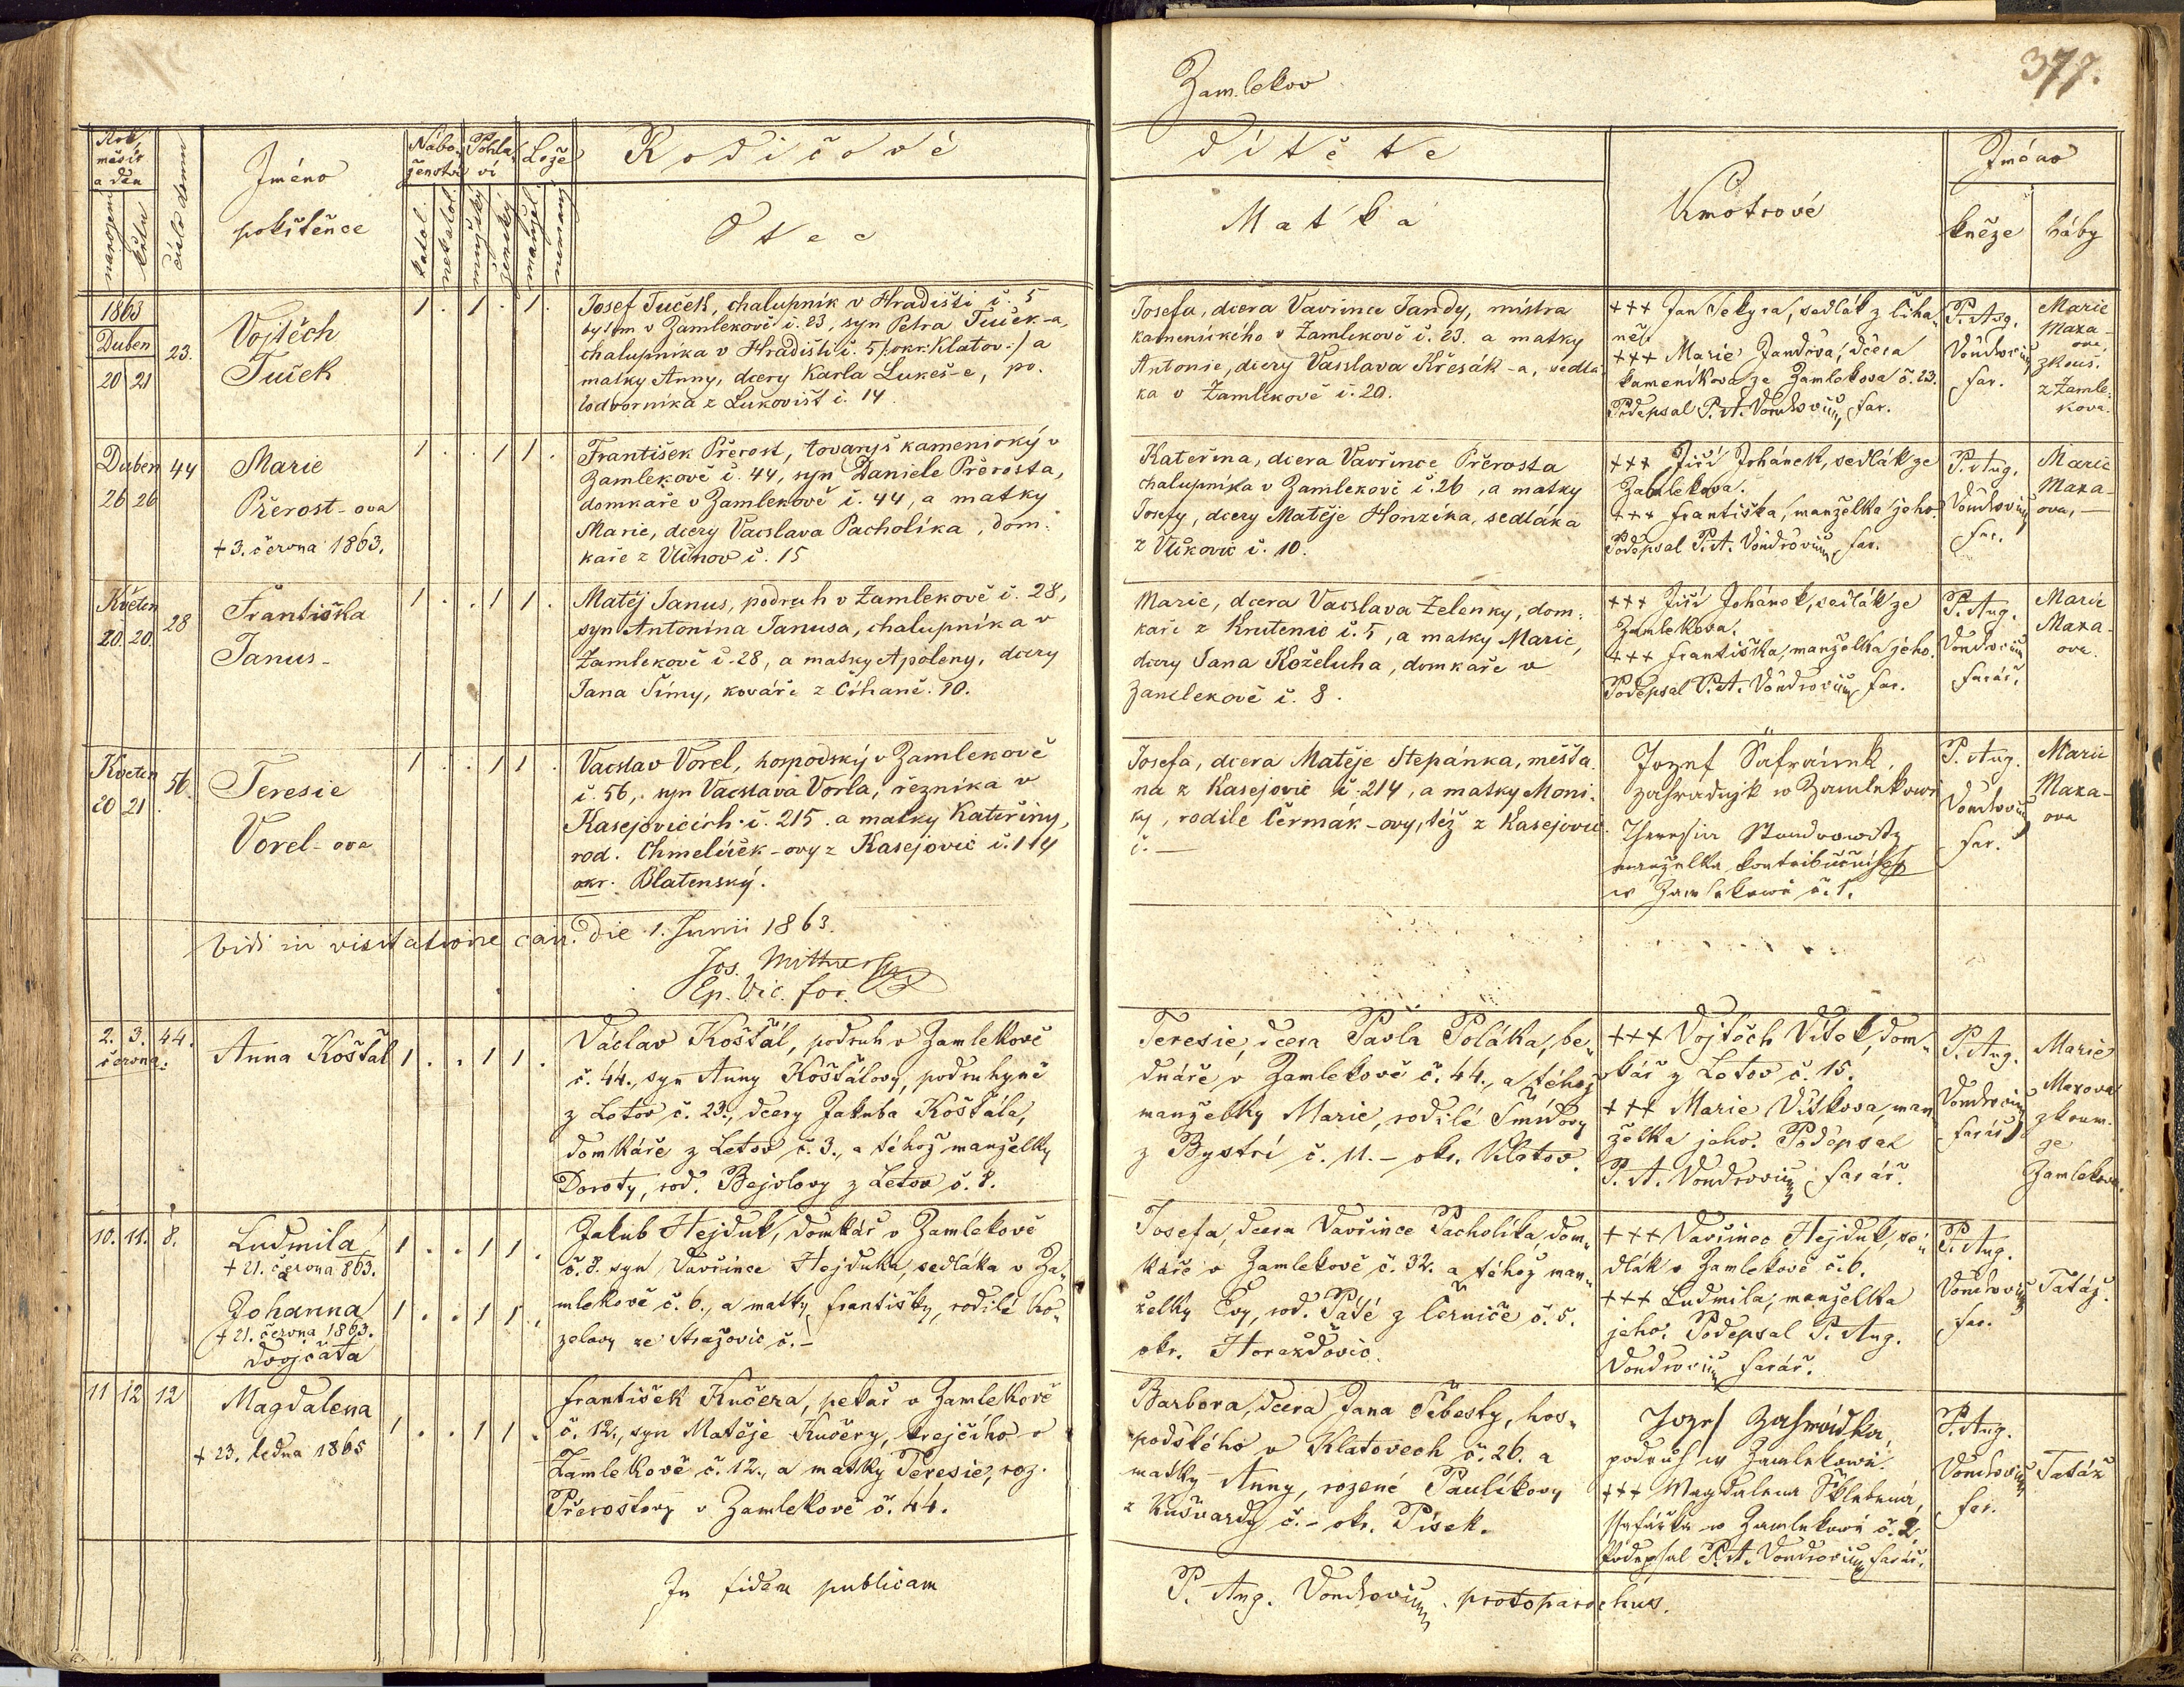 Zamlekov
377.
Rok,
měsíc
a den
narození
křtu
číslo domu
Jméno
pokřtěnce
Nábo-
ženství
katol.
nekatol.
Pohla-
ví
mužský
ženský
Lože
manžel.
nemanž.
Rodičové
Otec
dítěte
Matka
Kmotrové
Jméno
kněze
báby
1863
Duben
20 21
23.
Vojtěch
Tuček
1 . 1 . 1 .
Josef Tuček, chalupník v Hradišti č. 5
bytem v Zamlekově č. 23, syn Petra Tuček-a,
chalupníka v Hradišti č. 5 /:okr. Klatov:/ a
matky Anny, dcery Karla Lukeš-e, po-
lodvorníka z Lukovišť č. 14
Josefa, dcera Vavřince Jandy, mistra
kamenického v Zamlekově č. 23. a matky
Antonie, dcery Vacslava Křesák-a, sedlá-
ka v Zamlekově č. 20.
+++ Jan Sekyra, sedlák z Číha-
ně.
+++ Marie Jandova, dcera
kameníkova ze Zamlekova č. 23.
Podepsal P. A. Vondrovius, far.
P. Aug.
Vondrovius
far.
Marie
Maxa-
ova,
zkouš.
z Zamle-
kova.
Duben
26 26
44
Marie
Přerost-ova
+ 3. června 1863.
1 . . 1 1 .
František Přerost, tovaryš kamenický v
Zamlekově č. 44, syn Daniele Přerosta,
domkáře v Zamlekově č. 44, a matky
Marie, dcery Vacslava Pacholíka, dom-
káře z č. 15
Kateřina, dcera Vavřince Přerosta
chalupníka v Zamlekově č. 26, a matky
Josefy, dcery Matěje Honzíka, sedláka
z Vlčkovic č. 10.
+++ Jiří Johánek, sedlák ze
Zamlekova.
+++ Františka, manželka jeho.
Podepsal P. A. Vondrovius, far.
P. Aug.
Vondrovius
far.
Marie
Maxa-
ova, —
Květen
20 20
28
Františka
Janus-
1 . . 1 1 .
Matěj Janus, podruh v Zamlekově č. 28,
syn Antonína Janusa, chalupníka v
Zamlekově č. 28, a matky Apoleny, dcery
Jana Šímy, kováře z Číhaně č. 10.
Marie, dcera Vacslava Zelenky, dom-
káře z Krutenic č. 5, a matky Marie,
dcery Jana Koželuha, domkáře v
Zamlekově č. 8.
+++ Jiří Johánek, sedlák ze
Zamlekova.
+++ Františka, manželka jeho.
Podepsal P. A. Vondrovius, far.
P. Aug.
Vondrovius
farář.
Marie
Maxa-
ova.
Květen
20 21
56.
Teresie
Vorel-ova
1 . . 1 1 .
Vacslav Vorel, hospodský v Zamlekově
č. 56, syn Vacslava Vorla, řezníka v
Kasejovicích č. 215. a matky Kateřiny,
rod. Chmelíček-ovy z Kasejovic č. 114
okr. Blatenský.
Josefa, dcera Matěje Štepánka, měšťa-
na z Kasejovic č. 214, a matky Moni-
ky, rodilé Čermák-ovy, též z Kasejovic
č. —
Jozef Šafránek,
zahradnjk w Zamlekowě
Theresia
manželka kontribučnjho
w Zamlekowě č. 1.
P. Aug.
Vondrovius
far.
Marie
Maxa-
ova
Vidi in visitatione can. die 1. Junii 1863.
Jos.
Ep. Vic. for.
2. 3. 44.
června.
Anna Košťál
1 . . 1 1 .
Václav Košťál, podruh v Zamlekově
č. 44., syn Anny Košťálovy, podruhyně
z Letov č. 23., dcery Jakuba Košťála,
domkáře z Letov č. 3., a téhož manželky
Doroty, rod. Bejvlovy z Letov č. 8.
Teresie, dcera Pavla Poláka, be-
dnáře v Zamlekově č. 44., a téhož
manželky Marie, rodilé Šmídovy
z Bystrí č. 11. – okr. Klatov.
+++ Vojtěch Vítek, dom-
kář z Letov č. 15.
+++ Marie Vítkova, man-
želka jeho. Podepsal
P. A. Vondrovius farář.
P. Aug.
Vondrovius
farář
Marie
Maxova
zkoum.
ze
Zamlekova.
10. 11. 8.
Ludmila
+ 21. června 863.
a
Johanna
+ 21. června 1863.
dvojčata
1 . . 1 1 .
1 . . 1 1 .
Jakub Hejduk, domkář v Zamlekově
č. 8. syn Vavřince Hejduka, sedláka v Za-
mlekově č. 6., a matky Františky, rodilé Ko-
zelovy ze Stražovic č. –
Josefa, dcera Vavřince Pacholíka, dom-
káře v Zamlekově č. 32. a téhož man-
želky Evy, rod. z Černíče č. 5.
okr. Horažďovic.
+++ Vavřinec Hejduk, se-
dlák v Zamlekově č. 6.
+++ Ludmila, manželka
jeho. Podepsal P. Aug.
Vondrovius farář.
P. Aug.
Vondrovius
far.
Tatáž.
11 12 12
Magdalena
+ 23. ledna 1865
1 . . 1 1 .
František Kučera, pekař v Zamlekově
č. 12., syn Matěje Kučery, krejčího v
Zamlekově č. 12., a matky Teresie, roz.
Přerostovy v Zamlekově č. 44.
Barbora, dcera Jana Šebesty, hos-
podského v Klatovech č. 26. a
matky Anny, rozené Paulíkovy
z Kušvardy č. – okr. Písek.
Jozef Zahrádka,
podruh w Zamlekowě.
+++ Magdalena
w Zamlekowě č. 2.
Podepsal P. A. Vondrovius, farář.
P. Aug.
Vondrovius
far.
Tatáž
In fidem publicam
P. Aug. Vondrovius. protoparochus.